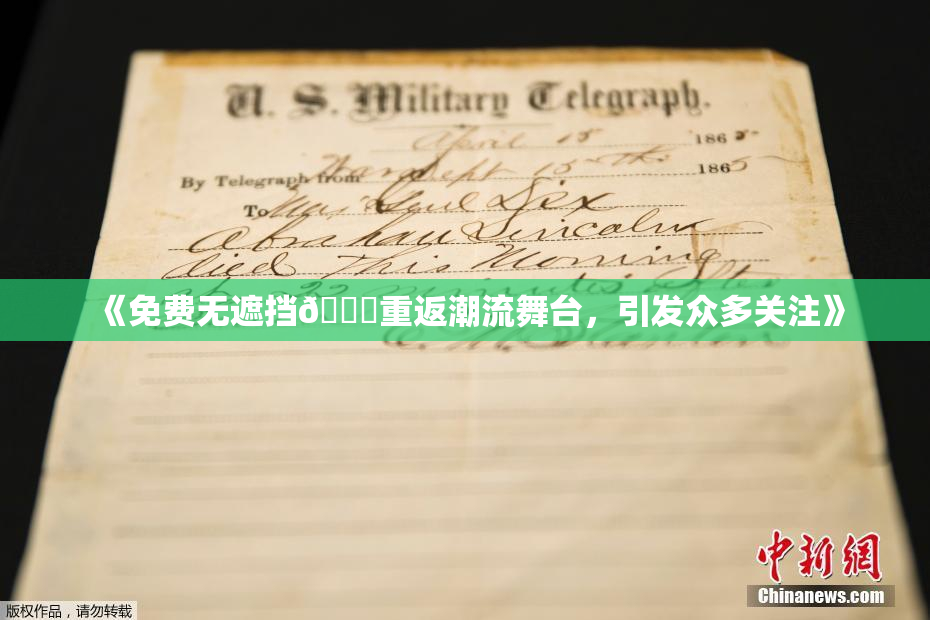 U. S. Military Telegraph.
April 15 1865
By Telegraph from War Dept 15th 1865
To Maj Genl Dix
Abraham Lincoln
died This Morning
at 22 minutes after
《免费无遮挡ð重返潮流舞台，引发众多关注》
E. M. Stanton
中新网
Chinanews.com
版权作品，请勿转载